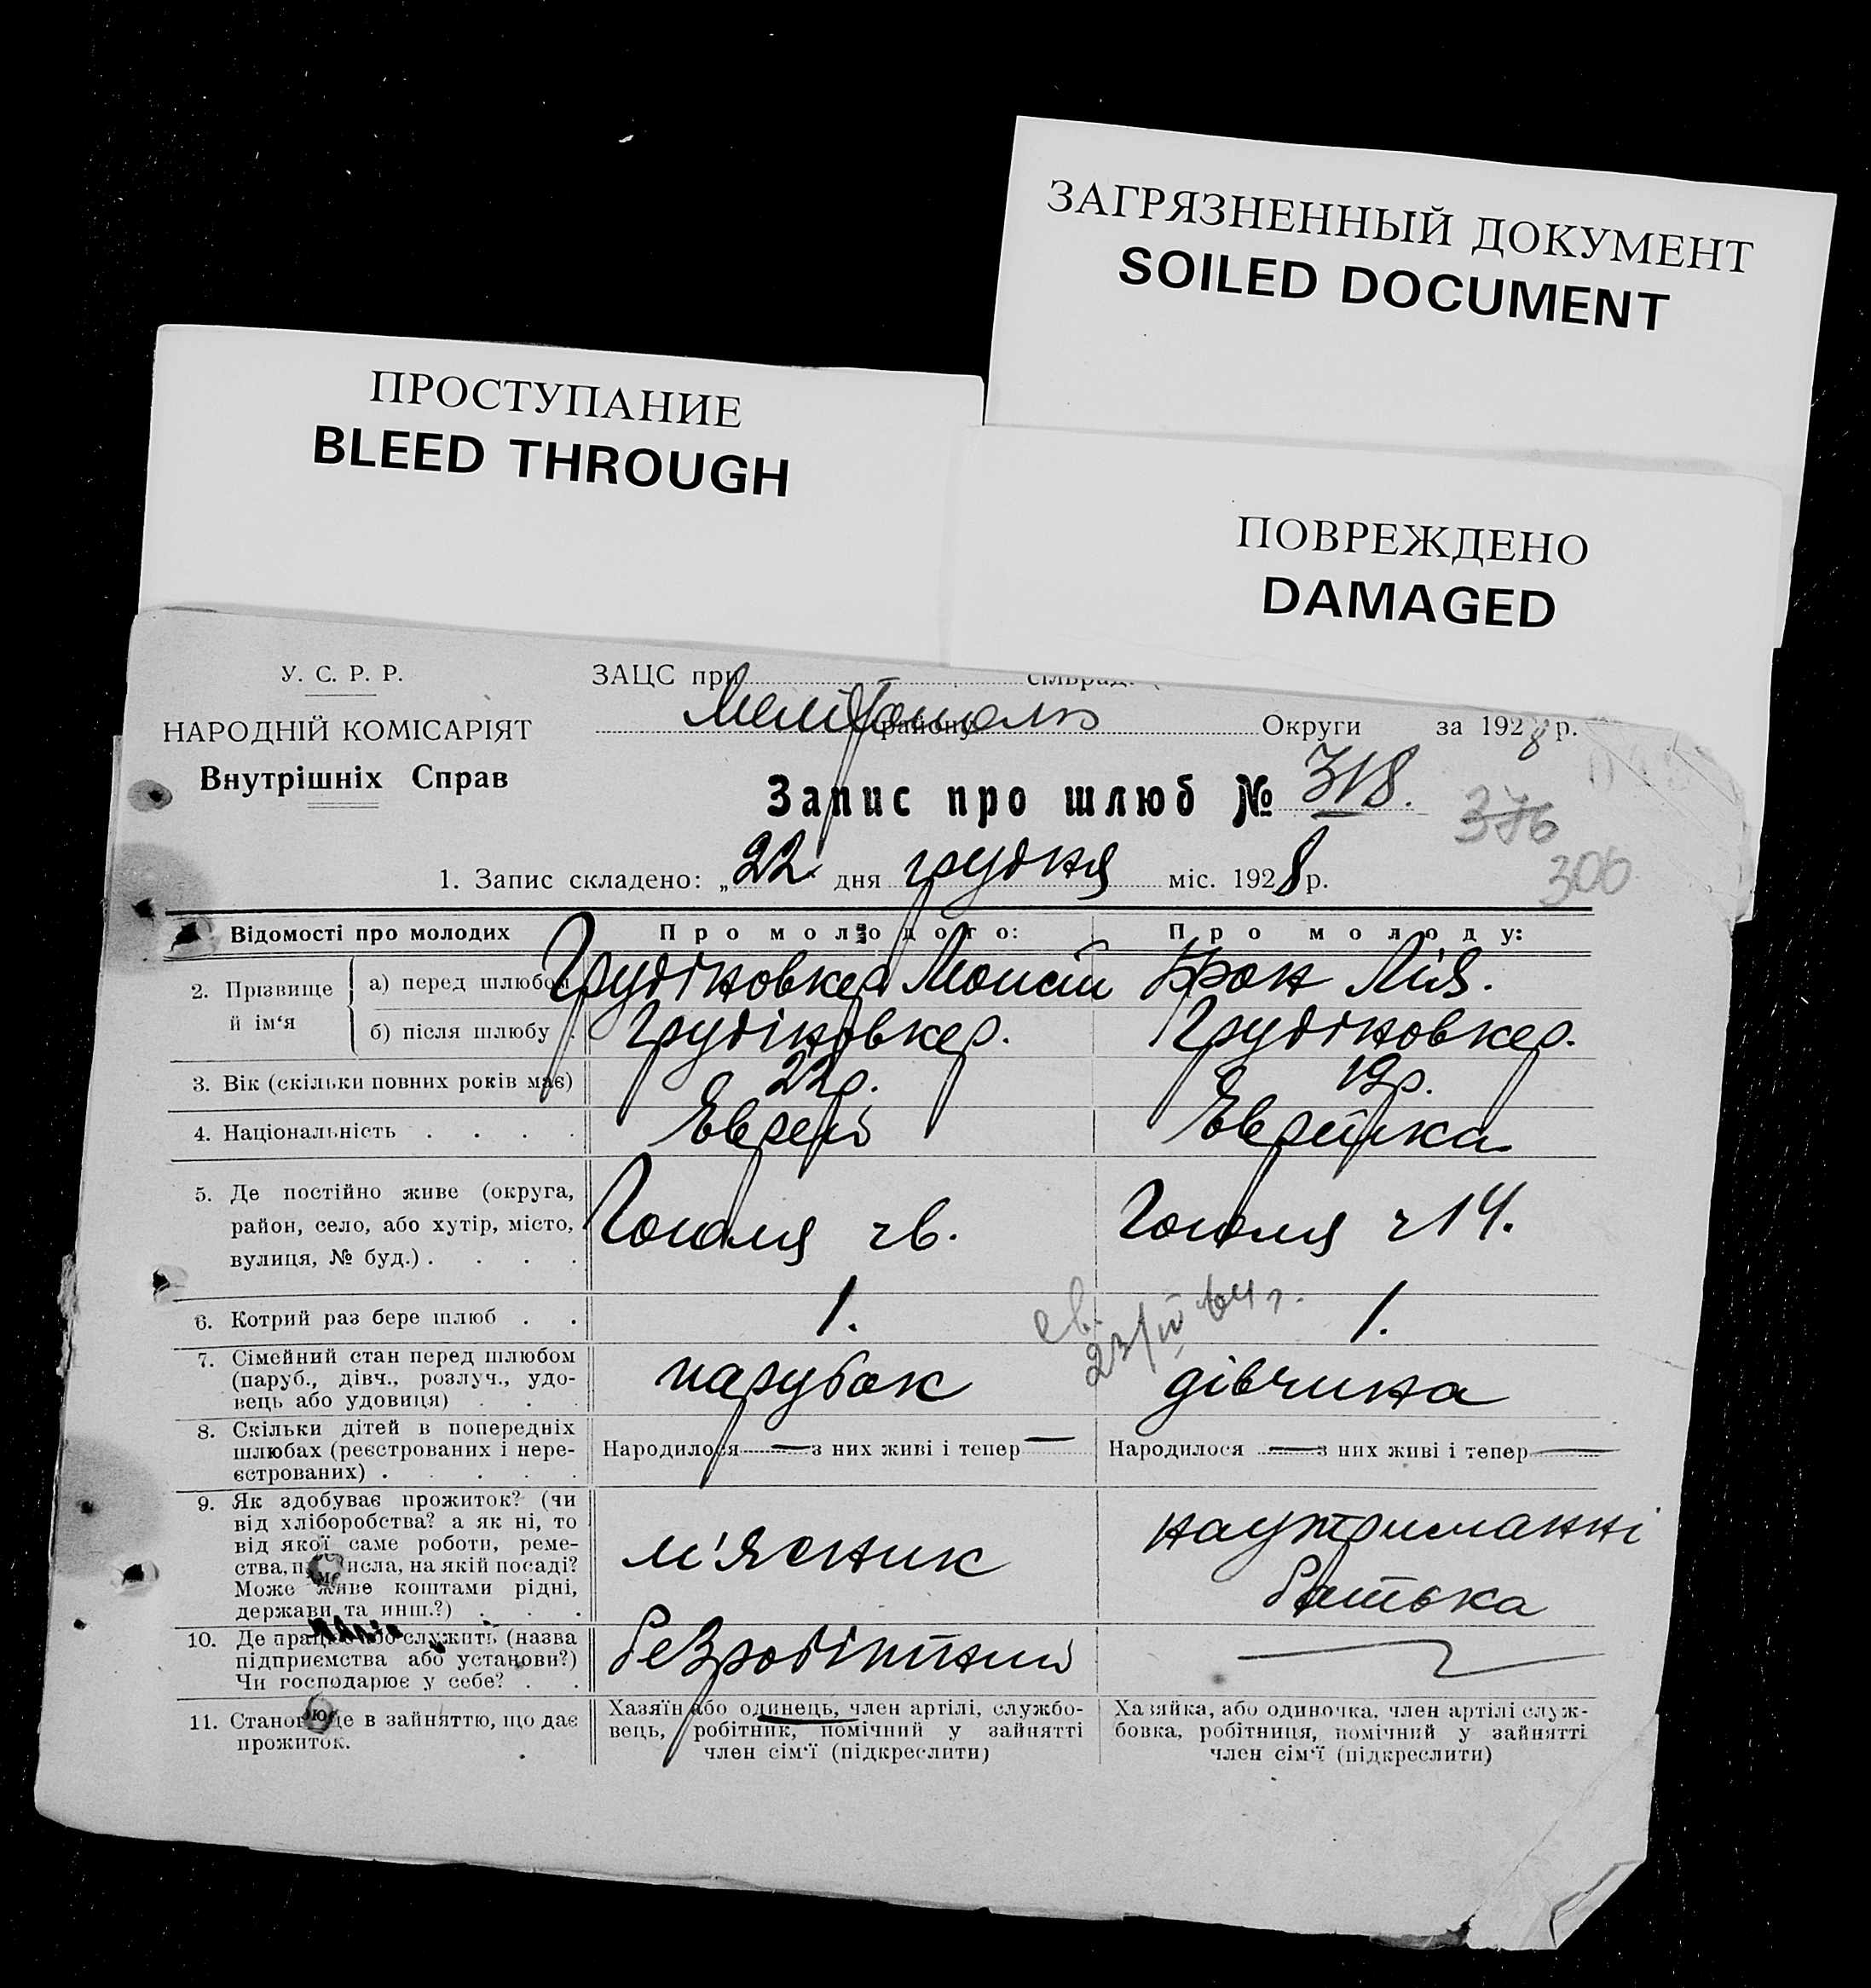 ЗАГРЯЗНЕННЫЙ ДОКУМЕНТ
SOILED DOCUMENT
ПРОСТУПАНИЕ
BLEED THROUGH
ПОВРЕЖДЕНО
DAMAGED
У. С. Р. Р.
НАРОДНІЙ КОМІСАРІЯТ
Внутрішніх Справ
ЗАЦС при сільрад.
району Округи за 1928 р.
Запис про шлюб № 318.
376
306
1. Запис складено: „22 дня грудня міс. 1928 р.
Відомості про молодих Про молодого: Про молоду:
2. Прізвище й ім‘я
а) перед шлюбом Грудіновкер Моисій Брон Лія.
б) після шлюбу . Грудіновкер. Грудіновкер.
3. Вік (скільки повних років має) 22р. 19р.
4. Національність . . . . Еврей Еврейка
5. Де постійно живе (округа,
район, село, або хутір, місто,
вулиця, № буд.) . . . .
Гоголя ч6. Гоголя ч14.
6. Котрий раз бере шлюб . . 1. 1.
23/IV 64 г.
7. Сімейний стан перед шлюбом
(паруб., дівч., розлуч., удо-
вець або удовиця) . . .
парубок дівчина
8. Скільки дітей в попередніх
шлюбах (реєстрованих і нере-
єстрованих) . . . . .
Народилося — з них живі і тепер — Народилося — з них живі і тепер —
9. Як здобуває прожиток? (чи
від хліборобства? а як ні, то
від якої саме роботи, реме-
ства, на якій посаді?
Може живе коштами рідні,
держави та инш.?) . . .
м'ясник
на утриманні
батька
10. Де працює або служить (назва
підприємства або установи?)
Чи господарює у себе? . .
безробітний —
11. Становище в зайняттю, що дає
прожиток.
Хазяїн або одинець, член артілі, службо-
вець, робітник, помічний у зайнятті
член сім‘ї (підкреслити)
Хазяйка, або одиночка, член артілі служ-
бовка, робітниця, помічний у зайнятті
член сім‘ї (підкреслити)